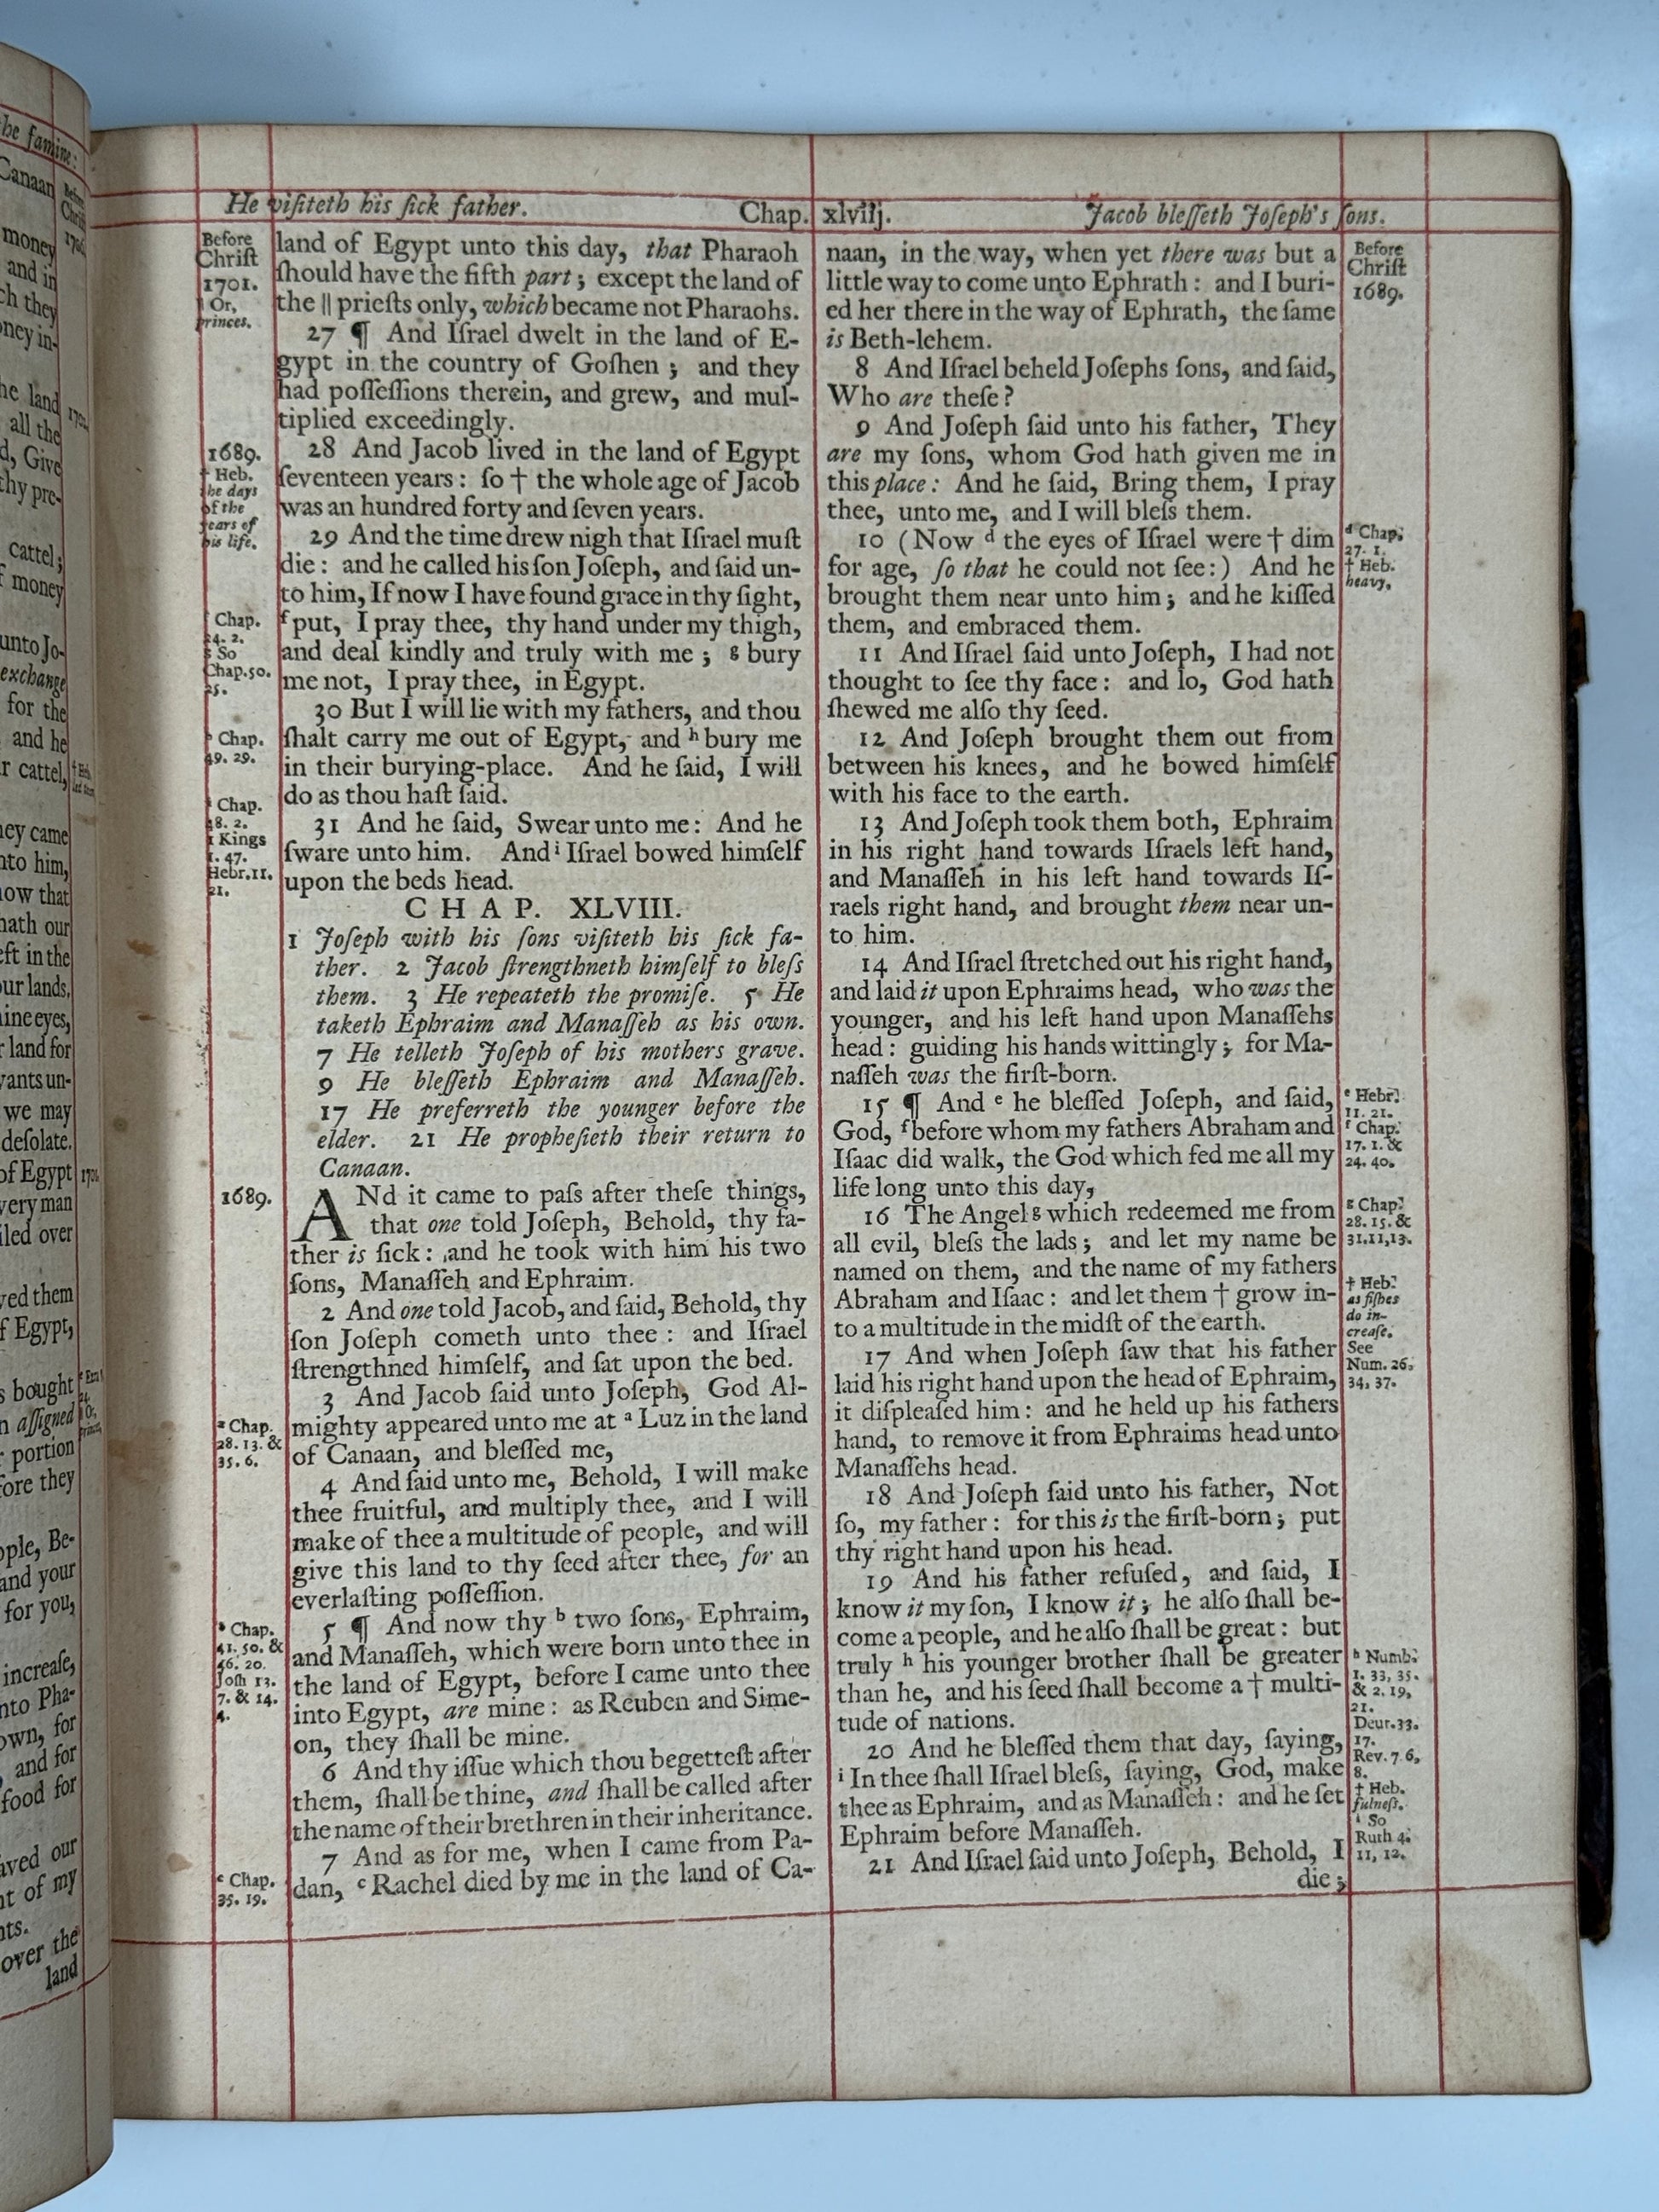 he famine:
Canaan
money
and in
ch they
oney in-
he land
all the
d, Give
thy pre-
cattel;
f money
unto Jo-
exchange
for the
and he
r cattel,
hey came
nto him,
now that
hath our
eft in the
our lands.
ine eyes,
r land for
vants un-
we may
desolate.
of Egypt
very man
iled over
ved them
f Egypt,
s bought
n assigned
r portion
fore they
ople, Be-
and your
for you,
increase,
nto Pha-
own, for
and for
food for
aved our
ht of my
nts.
over the
land
He viſiteth his ſick father. Chap. xlviij. Jacob bleſſeth Joſeph's ſons.
Before
Chriſt
1701.
Or,
princes.
land of Egypt unto this day, that Pharaoh
ſhould have the fifth part; except the land of
the || prieſts only, which became not Pharaohs.
27 ¶ And Iſrael dwelt in the land of E-
gypt in the country of Goſhen; and they
had poſſeſſions therein, and grew, and mul-
tiplied exceedingly.
1689.
† Heb.
the days
of the
years of
his life.
28 And Jacob lived in the land of Egypt
ſeventeen years: ſo † the whole age of Jacob
was an hundred forty and ſeven years.
29 And the time drew nigh that Iſrael muſt
die: and he called his ſon Joſeph, and ſaid un-
to him, If now I have found grace in thy ſight,
f Chap.
24. 2.
g So
Chap. 50.
25.
f put, I pray thee, thy hand under my thigh,
and deal kindly and truly with me; g bury
me not, I pray thee, in Egypt.
30 But I will lie with my fathers, and thou
h Chap.
49. 29.
ſhalt carry me out of Egypt, and h bury me
in their burying-place. And he ſaid, I will
do as thou haſt ſaid.
i Chap.
48. 2.
1 Kings
1. 47.
Hebr. 11.
21.
31 And he ſaid, Swear unto me: And he
ſware unto him. And i Iſrael bowed himſelf
upon the beds head.
CHAP. XLVIII.
1 Joſeph with his ſons viſiteth his ſick fa-
ther. 2 Jacob ſtrengthneth himſelf to bleſs
them. 3 He repeateth the promiſe. 5 He
taketh Ephraim and Manaſſeh as his own.
7 He telleth Joſeph of his mothers grave.
9 He bleſſeth Ephraim and Manaſſeh.
17 He preferreth the younger before the
elder. 21 He propheſieth their return to
Canaan.
1689.
ANd it came to paſs after theſe things,
that one told Joſeph, Behold, thy fa-
ther is ſick: and he took with him his two
ſons, Manaſſeh and Ephraim.
2 And one told Jacob, and ſaid, Behold, thy
ſon Joſeph cometh unto thee: and Iſrael
ſtrengthned himſelf, and ſat upon the bed.
3 And Jacob ſaid unto Joſeph, God Al-
a Chap.
28. 13. &
35. 6.
mighty appeared unto me at a Luz in the land
of Canaan, and bleſſed me,
4 And ſaid unto me, Behold, I will make
thee fruitful, and multiply thee, and I will
make of thee a multitude of people, and will
give this land to thy ſeed after thee, for an
everlaſting poſſeſſion.
b Chap.
41. 50. &
46. 20.
Joſh 13.
7. & 14.
4.
5 ¶ And now thy b two ſons, Ephraim,
and Manaſſeh, which were born unto thee in
the land of Egypt, before I came unto thee
into Egypt, are mine: as Reuben and Sime-
on, they ſhall be mine.
6 And thy iſſue which thou begetteſt after
them, ſhall be thine, and ſhall be called after
the name of their brethren in their inheritance.
7 And as for me, when I came from Pa-
c Chap.
35. 19.
dan, c Rachel died by me in the land of Ca-
naan, in the way, when yet there was but a
little way to come unto Ephrath: and I buri-
ed her there in the way of Ephrath, the ſame
is Beth-lehem.
Before
Chriſt
1689.
8 And Iſrael beheld Joſephs ſons, and ſaid,
Who are theſe?
9 And Joſeph ſaid unto his father, They
are my ſons, whom God hath given me in
this place: And he ſaid, Bring them, I pray
thee, unto me, and I will bleſs them.
10 (Now d the eyes of Iſrael were † dim
for age, ſo that he could not ſee:) And he
brought them near unto him; and he kiſſed
them, and embraced them.
d Chap.
27. 1.
† Heb.
heavy.
11 And Iſrael ſaid unto Joſeph, I had not
thought to ſee thy face: and lo, God hath
ſhewed me alſo thy ſeed.
12 And Joſeph brought them out from
between his knees, and he bowed himſelf
with his face to the earth.
13 And Joſeph took them both, Ephraim
in his right hand towards Iſraels left hand,
and Manaſſeh in his left hand towards Iſ-
raels right hand, and brought them near un-
to him.
14 And Iſrael ſtretched out his right hand,
and laid it upon Ephraims head, who was the
younger, and his left hand upon Manaſſehs
head: guiding his hands wittingly; for Ma-
naſſeh was the firſt-born.
15 ¶ And e he bleſſed Joſeph, and ſaid,
God, f before whom my fathers Abraham and
Iſaac did walk, the God which fed me all my
life long unto this day,
e Hebr.
11. 21.
f Chap.
17. 1. &
24. 40.
16 The Angel g which redeemed me from
all evil, bleſs the lads; and let my name be
named on them, and the name of my fathers
Abraham and Iſaac: and let them † grow in-
to a multitude in the midſt of the earth.
g Chap.
28. 15. &
31.11,13.
† Heb.
as fiſhes
do in-
creaſe.
See
Num. 26,
34, 37.
17 And when Joſeph ſaw that his father
laid his right hand upon the head of Ephraim,
it diſpleaſed him: and he held up his fathers
hand, to remove it from Ephraims head unto
Manaſſehs head.
18 And Joſeph ſaid unto his father, Not
ſo, my father: for this is the firſt-born; put
thy right hand upon his head.
19 And his father refuſed, and ſaid, I
know it my ſon, I know it; he alſo ſhall be-
come a people, and he alſo ſhall be great: but
truly h his younger brother ſhall be greater
than he, and his ſeed ſhall become a † multi-
tude of nations.
h Numb.
1. 33, 35.
& 2. 19,
21.
Deut. 33.
17.
Rev. 7 6,
8.
† Heb.
fulneſs.
i So
Ruth 4.
11, 12.
20 And he bleſſed them that day, ſaying,
i In thee ſhall Iſrael bleſs, ſaying, God, make
thee as Ephraim, and as Manaſſeh: and he ſet
Ephraim before Manaſſeh.
21 And Iſrael ſaid unto Joſeph, Behold, I
die;